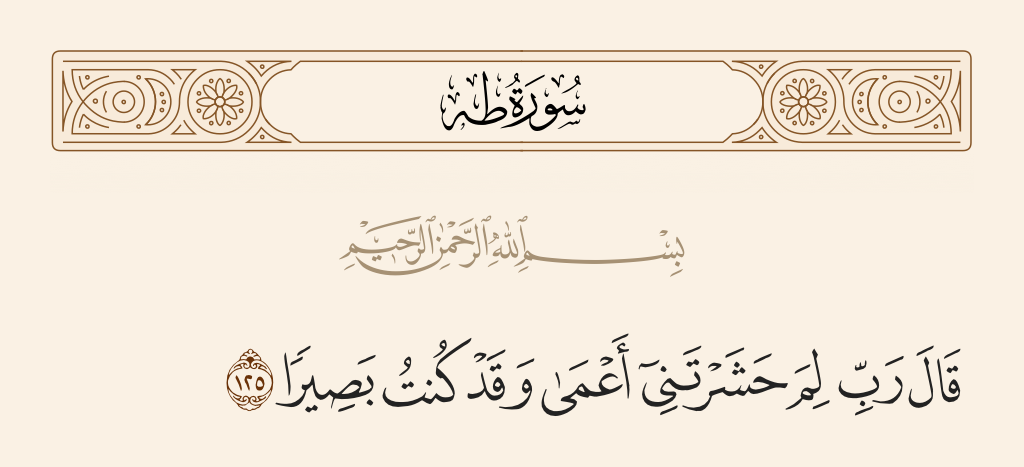 سُورَةُ طه
بِسْمِ ٱللَّهِ ٱلرَّحْمَٰنِ ٱلرَّحِيمِ
قَالَ رَبِّ لِمَ حَشَرْتَنِىٓ أَعْمَىٰ وَقَدْ كُنتُ بَصِيرًا ١٢٥